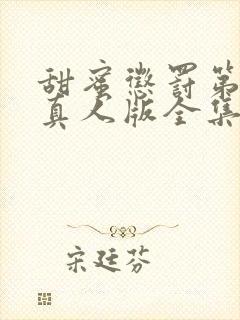 甜蜜惩罚第
真人版全集
宋廷芬